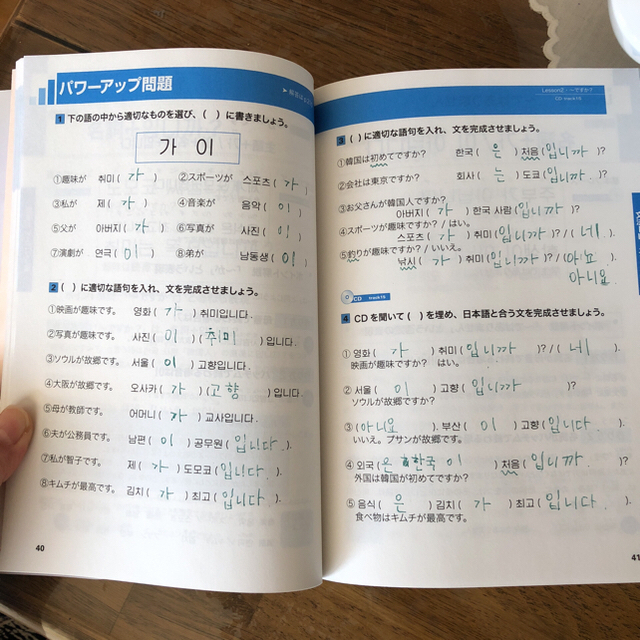 パワーアップ問題
1 下の語の中から適切なものを選び、( )に書きましょう。
가 이
①趣味が 취미 ( 가 ) ②スポーツが 스포츠 ( 가 )
③私が 제 ( 가 ) ④音楽が 음악 ( 이 )
⑤父が 아버지 ( 가 ) ⑥写真が 사진 ( 이 )
⑦演劇が 연극 ( 이 ) ⑧弟が 남동생 ( 이 )
2 ( )に適切な語句を入れ、文を完成させましょう。
①映画が趣味です。 영화 ( 가 ) 취미입니다.
②写真が趣味です。 사진 ( 이 ) ( 취미 ) 입니다.
③ソウルが故郷です。 서울 ( 이 ) 고향입니다.
④大阪が故郷です。 오사카 ( 가 ) ( 고향 ) 입니다.
⑤母が教師です。 어머니 ( 가 ) 교사입니다.
⑥夫が公務員です。 남편 ( 이 ) 공무원 ( 입니다. ).
⑦私が智子です。 제 ( 가 ) 도모코 ( 입니다. ).
⑧キムチが最高です。 김치 ( 가 ) 최고 ( 입니다. ).
40
Lesson2・〜ですか?
CD track16
3 ( )に適切な語句を入れ、文を完成させましょう。
①韓国は初めてですか? 한국 ( 은 ) 처음 ( 입니까 )?
②会社は東京ですか? 회사 ( 는 ) 도쿄 ( 입니까 )?
③お父さんが韓国人ですか?
아버지 ( 가 ) 한국 사람 ( 입니까 )?
④スポーツが趣味ですか? / はい。
스포츠 ( 가 ) 취미 ( 입니까 )? / ( 네 ).
⑤釣りが趣味ですか? / いいえ。
낚시 ( 가 ) 취미 ( 입니까 )? / ( 아뇨 ).
아니요
CD track16
4 CDを聞いて( )を埋め、日本語と合う文を完成させましょう。
① 영화 ( 가 ) 취미 ( 입니까 )? / ( 네 ).
映画が趣味ですか? はい。
② 서울 ( 이 ) 고향 ( 입니까 )?
ソウルが故郷ですか?
③ ( 아니요 ). 부산 ( 이 ) 고향 ( 입니다 ).
いいえ。プサンが故郷です。
④ 외국 ( 은 한국 이 ) 처음 ( 입니까 ).
外国は韓国が初めてですか?
⑤ 음식 ( 은 ) 김치 ( 가 ) 최고 ( 입니다. ).
食べ物はキムチが最高です。
41